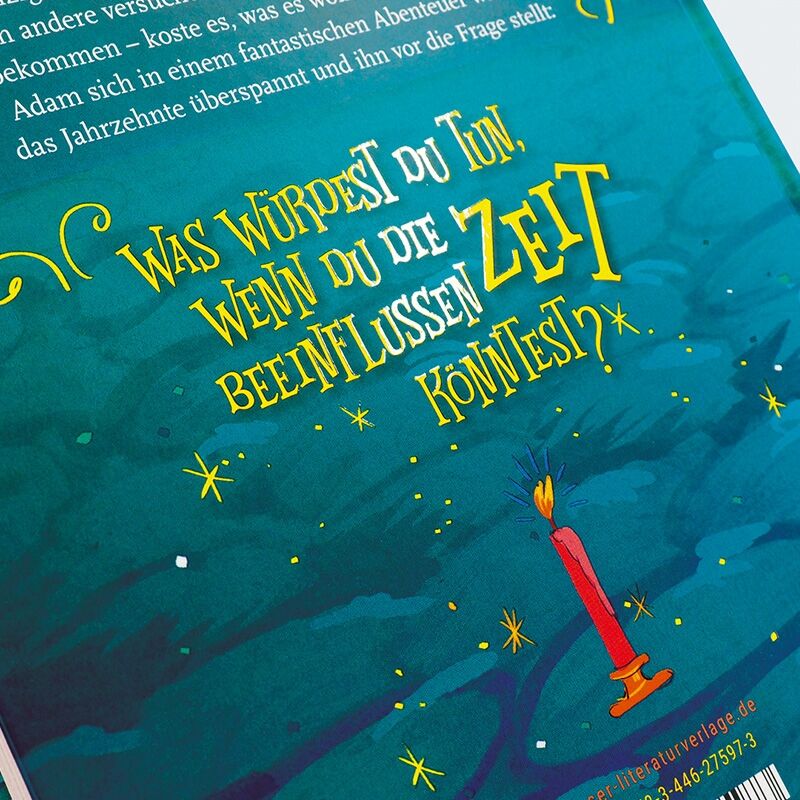 n andere versuch
bekommen – koste es, was es wo
Adam sich in einem fantastischen Abenteuer w
das Jahrzehnte überspannt und ihn vor die Frage stellt:
WAS WÜRDEST DU TUN,
WENN DU DIE ZEIT
BEEINFLUSSEN
KÖNNTEST?
ser-literaturverlage.de
3-446-27597-3